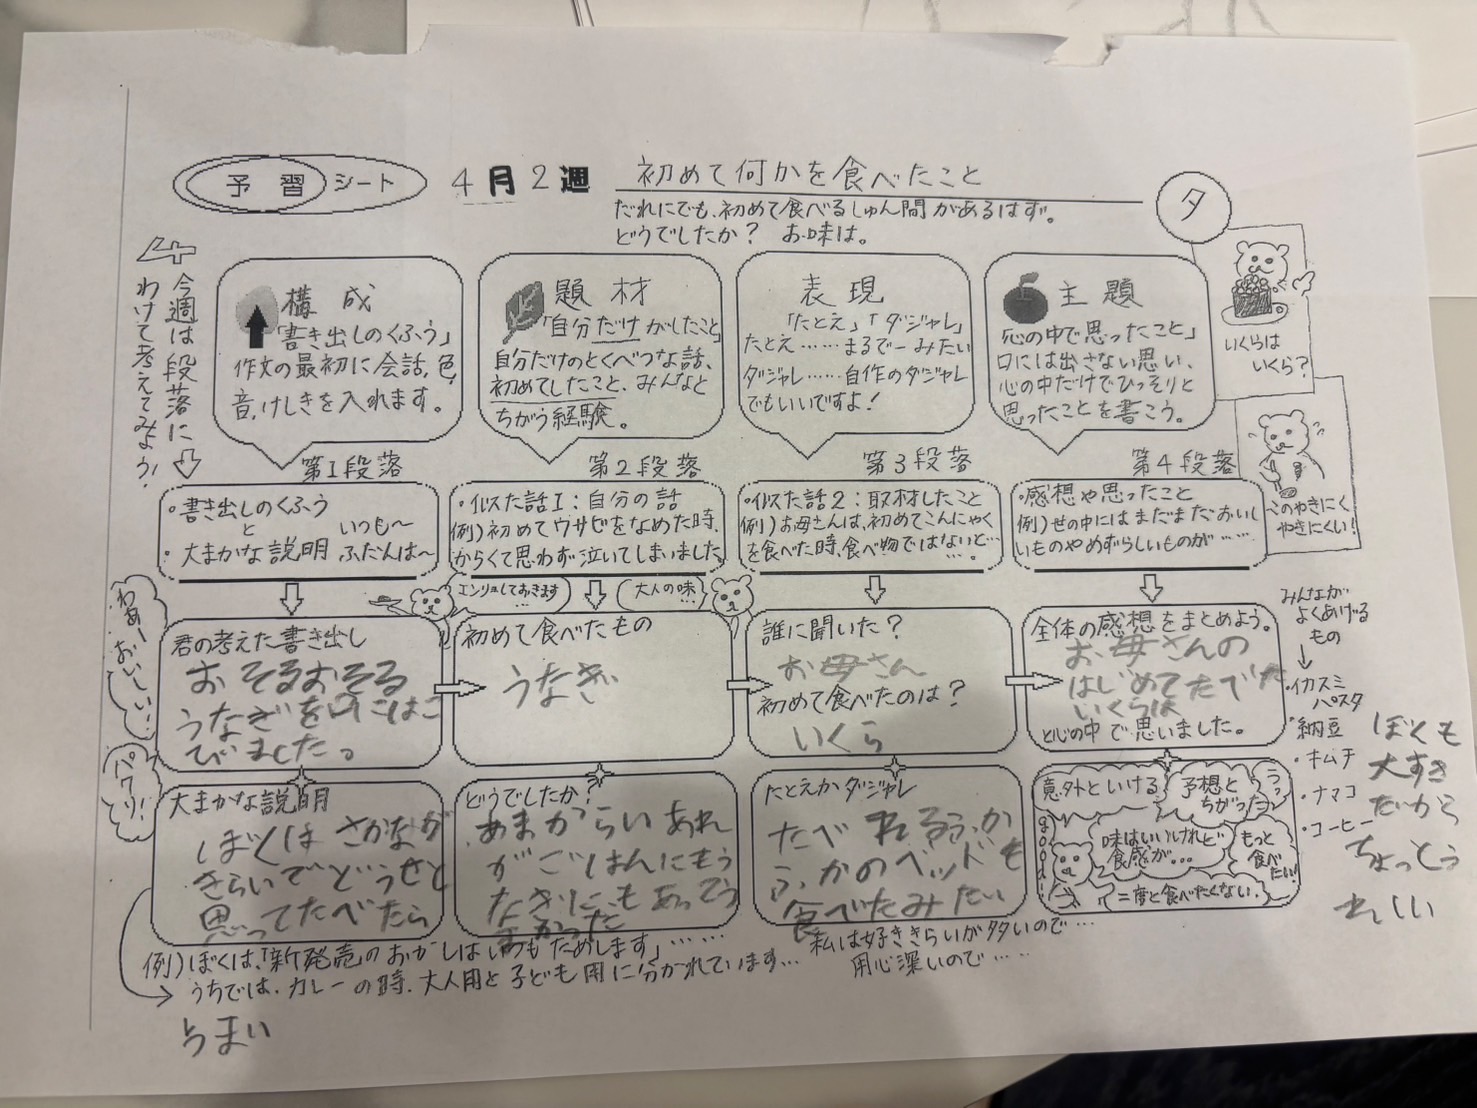 予習シート 4月2週 初めて何かを食べたこと
タ
だれにでも、初めて食べるしゅん間があるはず。
どうでしたか? お味は。
今週は段落に
わけて考えてみよう!
構成
「書き出しのくふう」
作文の最初に会話,色,
音,けしきを入れます。
題材
「自分だけがしたこと」
自分だけのとくべつな話、
初めてしたこと、みんなと
ちがう経験。
表現
「たとえ」「ダジャレ」
たとえ……まるで―みたい
ダジャレ……自作のダジャレ
でもいいですよ!
主題
「心の中で思ったこと」
口には出さない思い、
心の中だけでひっそりと
思ったことを書こう。
いくらは
いくら?
このやきにく
やきにくい!
第1段落
・書き出しのくふう
と
・大まかな説明
いつも〜
ふだんは〜
第2段落
・似た話1:自分の話
例)初めてワサビをなめた時、
からくて思わず泣いてしまいました
第3段落
・似た話2:取材したこと
例)お母さんは、初めてこんにゃく
を食べた時、食べ物ではないと…
……。
第4段落
・感想や思ったこと
例)世の中にはまだまだおいし
いものやめずらしいものが……
わあーおいしい!
パクリ!
エンリョしておきます
…
大人の味
…
君の考えた書き出し
おそるおそる
うなぎを口にはこ
びました。
初めて食べたもの
うなぎ
誰に聞いた?
お母さん
初めて食べたのは?
いくら
全体の感想をまとめよう。
お母さんの
はじめてたべた
いくらは
と心の中で思いました。
大まかな説明
ぼくはさかなが
きらいでどうせと
思ってたべたら
うまい
どうでしたか?
あまからいあれ
がごはんにもう
なぎにもあってう
まかった
たとえかダジャレ
たべれるふか
ふかのベッドも
食べたみたい
意外といける
予想と
ちがった
味はいいけれど
食感が…
もっと
食べたい!
二度と食べたくない。
みんなが
よくあげる
もの
・イカスミ
パスタ
・納豆
・キムチ
・ナマコ
・コーヒー
ぼくも
大すき
だから
ちょっとう
れしい
例)ぼくは、「新発売のおかしはいつもためします」……
うちでは、カレーの時、大人用と子ども用に分かれています…
私は好ききらいが多いので…
用心深いので……